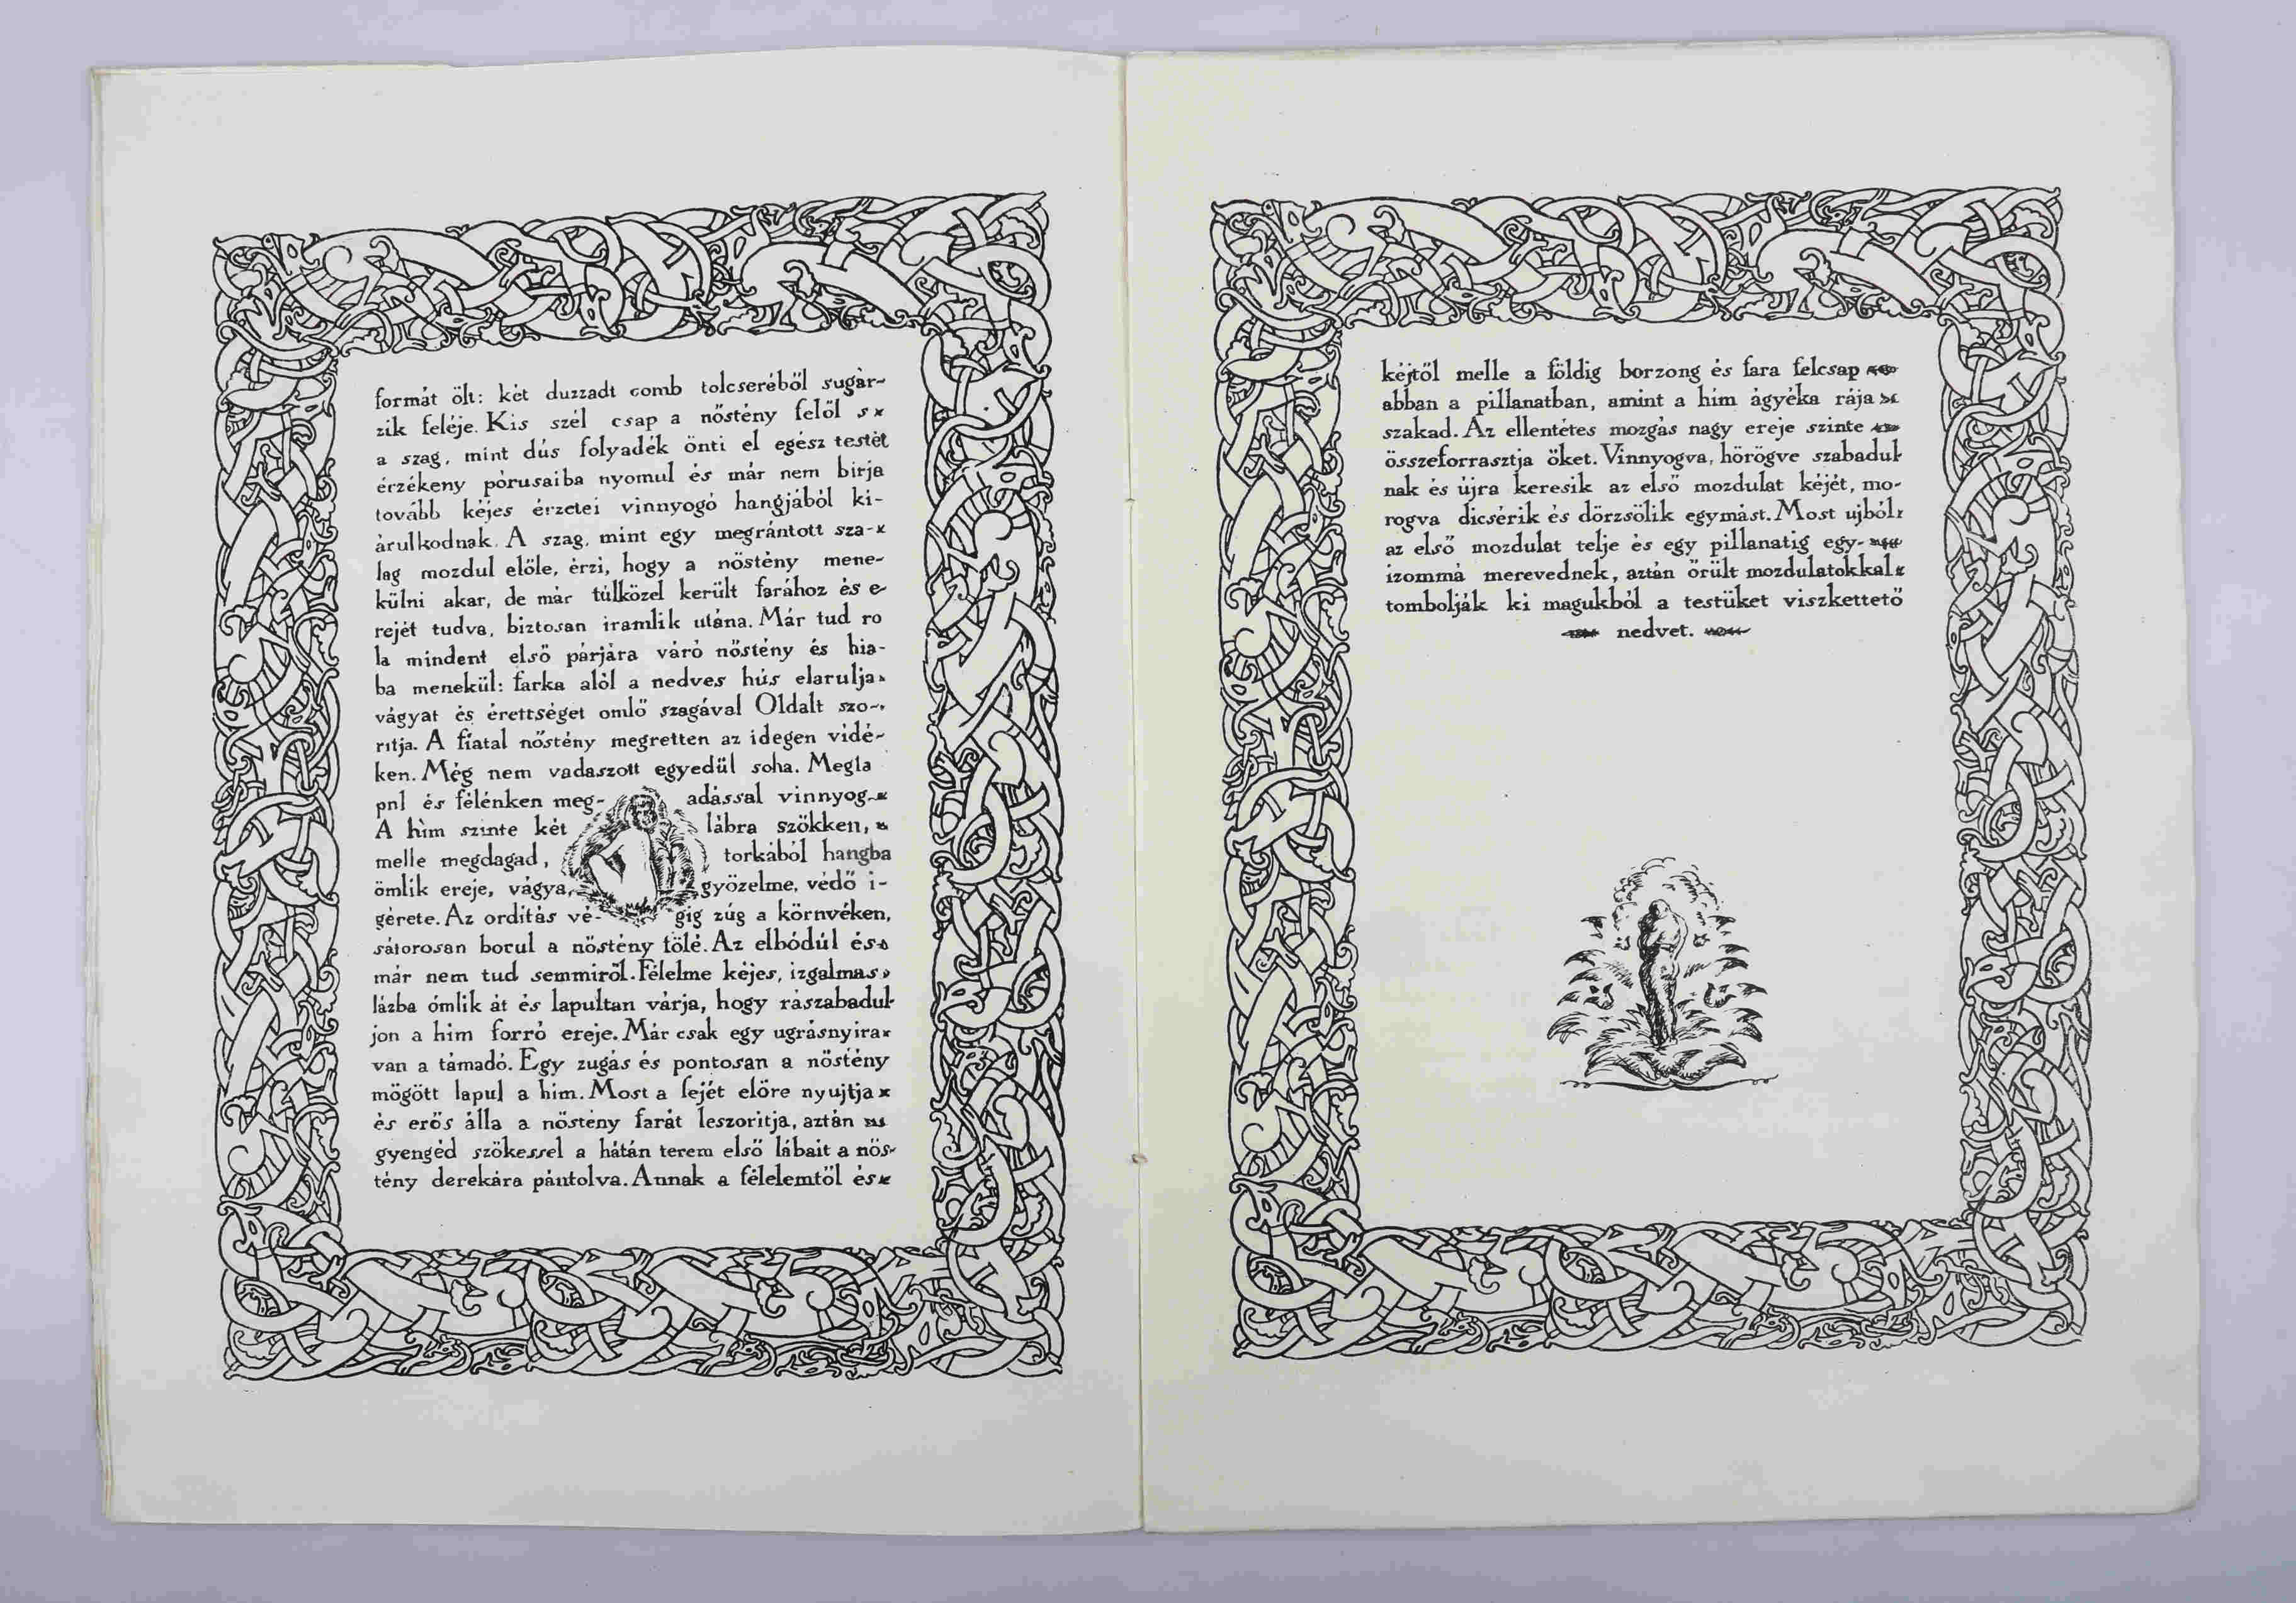 formát ölt: két duzzadt comb tolcseréből sugár-
zik feléje. Kis szél csap a nőstény felől s
a szag, mint dús folyadék önti el egész testét
érzékeny pórusaiba nyomul és már nem birja
tovább kéjes érzetei vinnyogó hangjából ki-
árulkodnak. A szag, mint egy megrántott sza-
lag mozdul előle, érzi, hogy a nőstény mene-
külni akar, de már túlközel került farához és e-
rejét tudva, biztosan iramlik utána. Már tud ro
la mindent első párjára váró nőstény és hia-
ba menekül: farka alól a nedves hús elarulja
vágyat és érettséget omló szagával Oldalt szo-
ritja. A fiatal nőstény megretten az idegen vidé-
ken. Még nem vadaszott egyedül soha. Megla
pul és félénken meg- adással vinnyog
A hím szinte két lábra szökken,
melle megdagad, torkából hangba
ömlik ereje, vágya, győzelme, védő i-
gérete. Az ordítás vé- gig zúg a környéken,
sátorosan borul a nőstény fölé. Az elbódúl és
már nem tud semmiről. Félelme kéjes, izgalmas
lázba ömlik át és lapultan várja, hogy rászabadul-
jon a him forró ereje. Már csak egy ugrásnyira
van a támadó. Egy zugás és pontosan a nőstény
mögött lapul a him. Most a fejét előre nyujtja
és erős álla a nőstény farát leszoritja, aztán
gyengéd szökessel a hátán terem első lábait a nös-
tény derekára pántolva. Annak a félelemtől és
kéjtől melle a földig borzong és fara felcsap
abban a pillanatban, amint a him ágyéka rája
szakad. Az ellentétes mozgás nagy ereje szinte
összeforrasztja őket. Vinnyogva, hörögve szabadul-
nak és újra keresik az első mozdulat kéjét, mo-
rogva dicsérik és dörzsölik egymást. Most ujból
az első mozdulat telje és egy pillanatig egy-
izommá merevednek, aztán őrült mozdulatokkal
tombolják ki magukból a testüket viszkettető
nedvet.